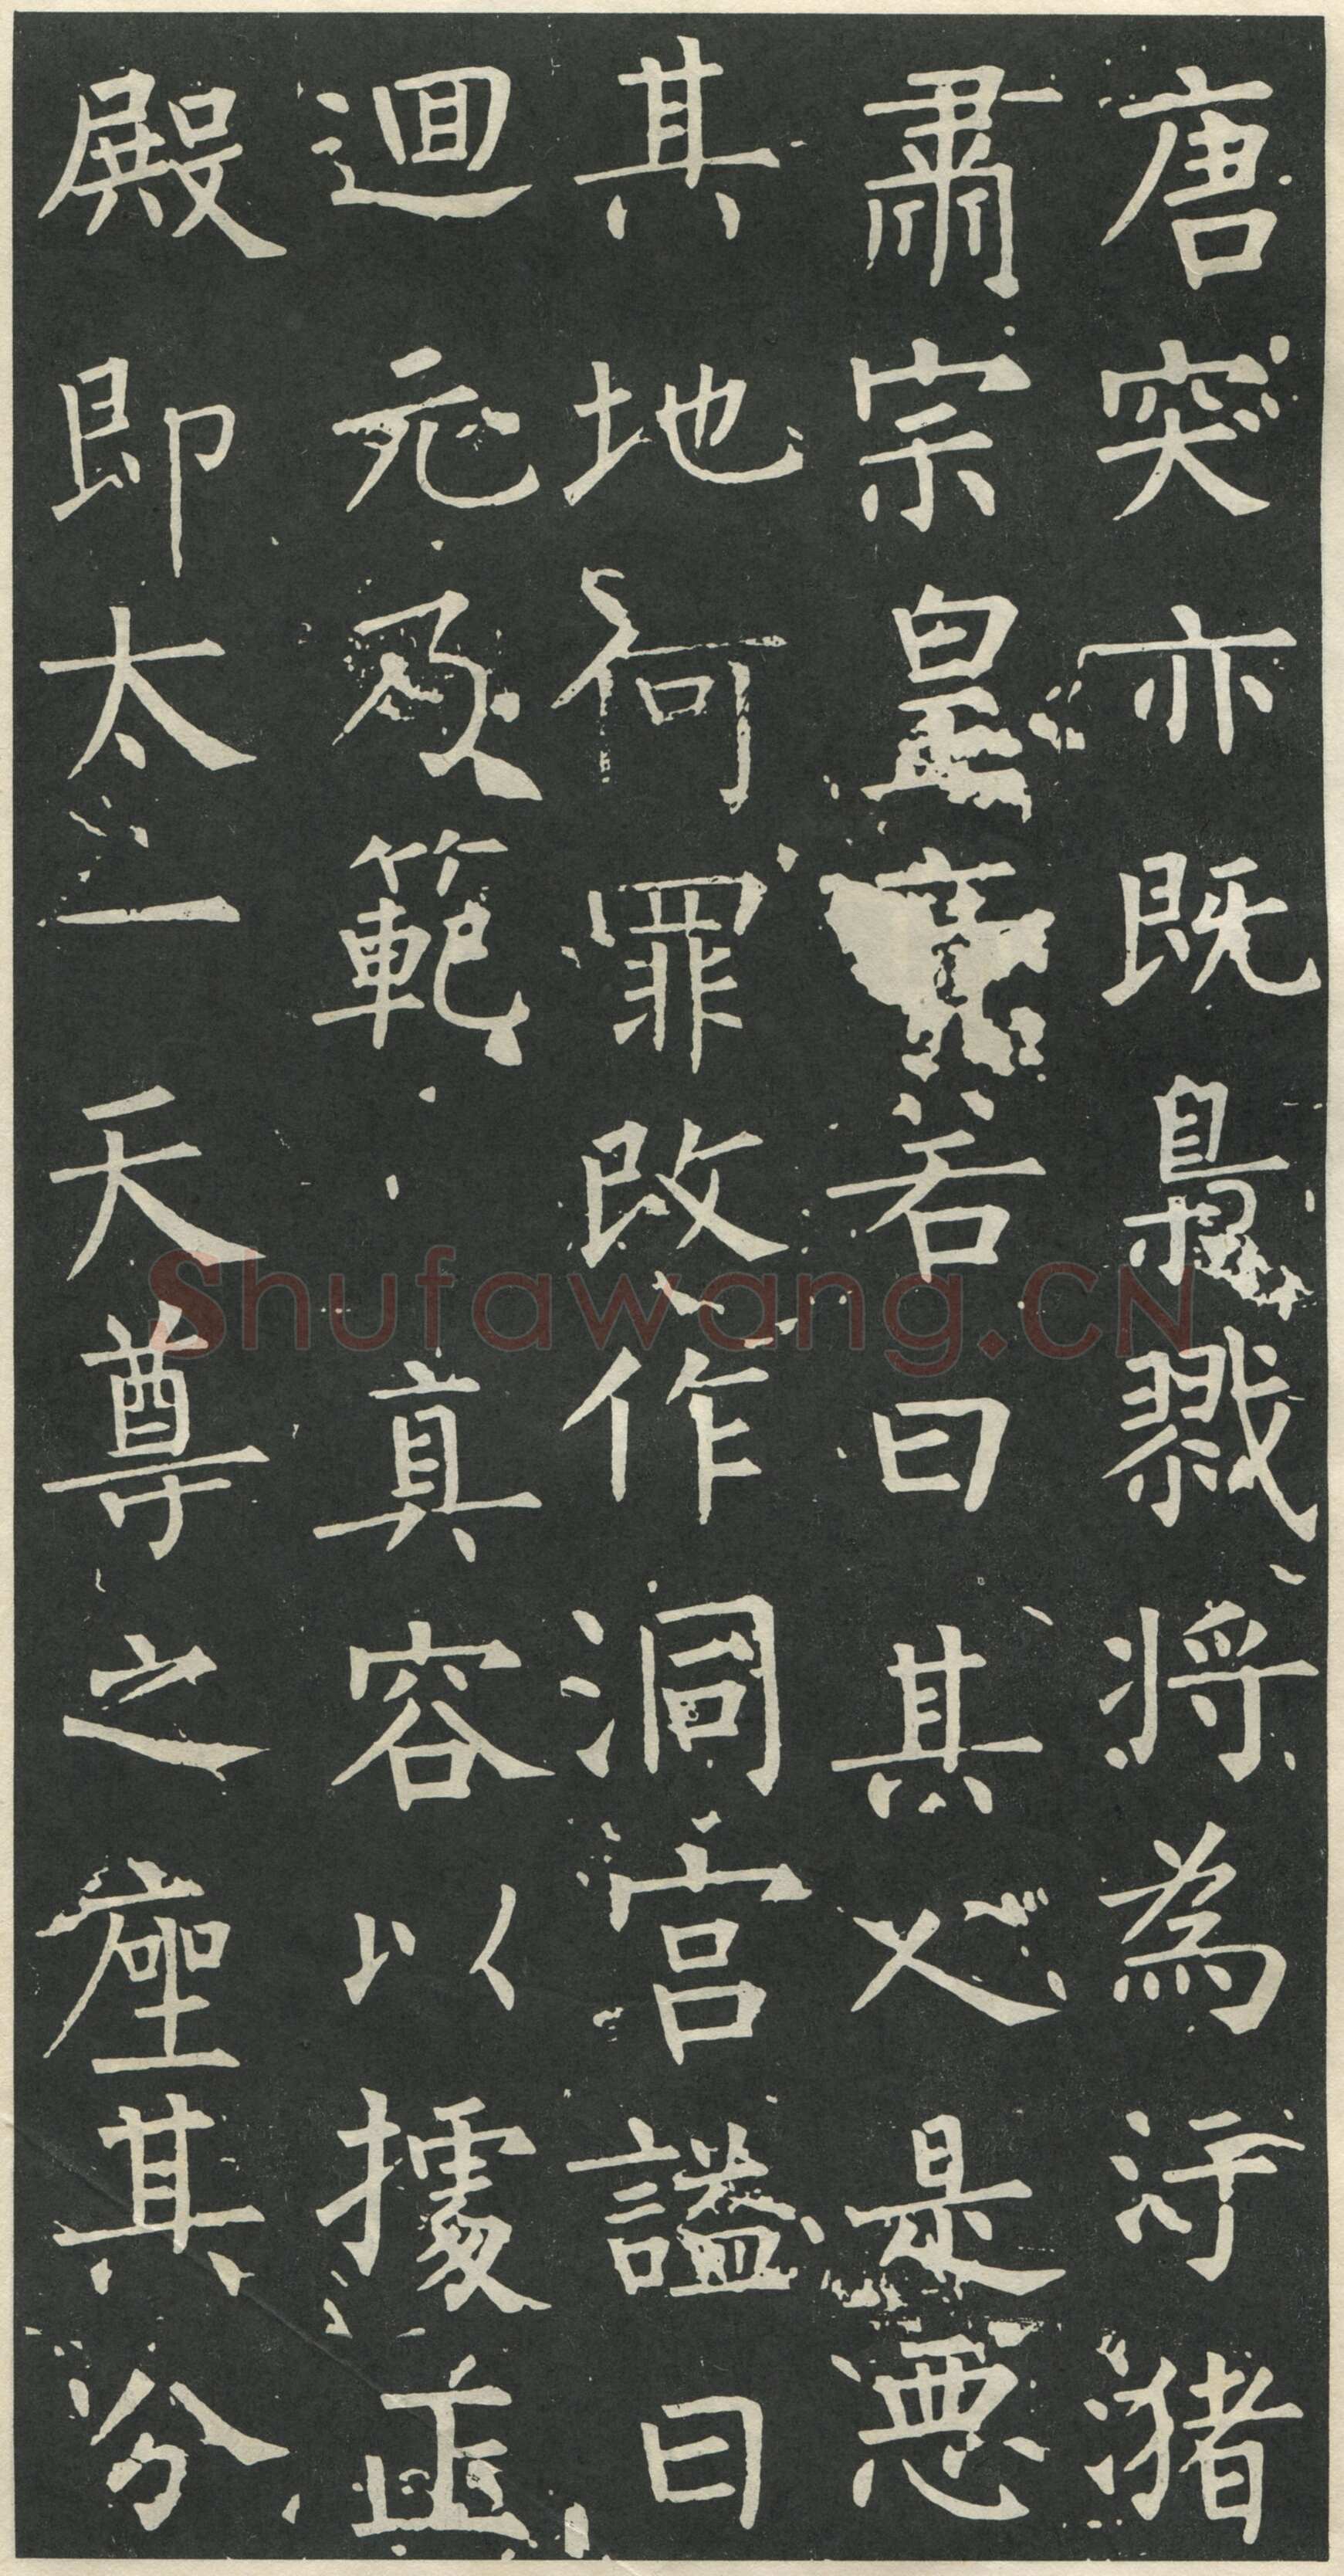 唐突亦既梟戮將為汙豬
肅宗皇帝若曰其人是惡
其地何罪改作洞宮謚曰
迴元乃範真容以據正
殿即太一天尊之座其分
Shufawang.CN